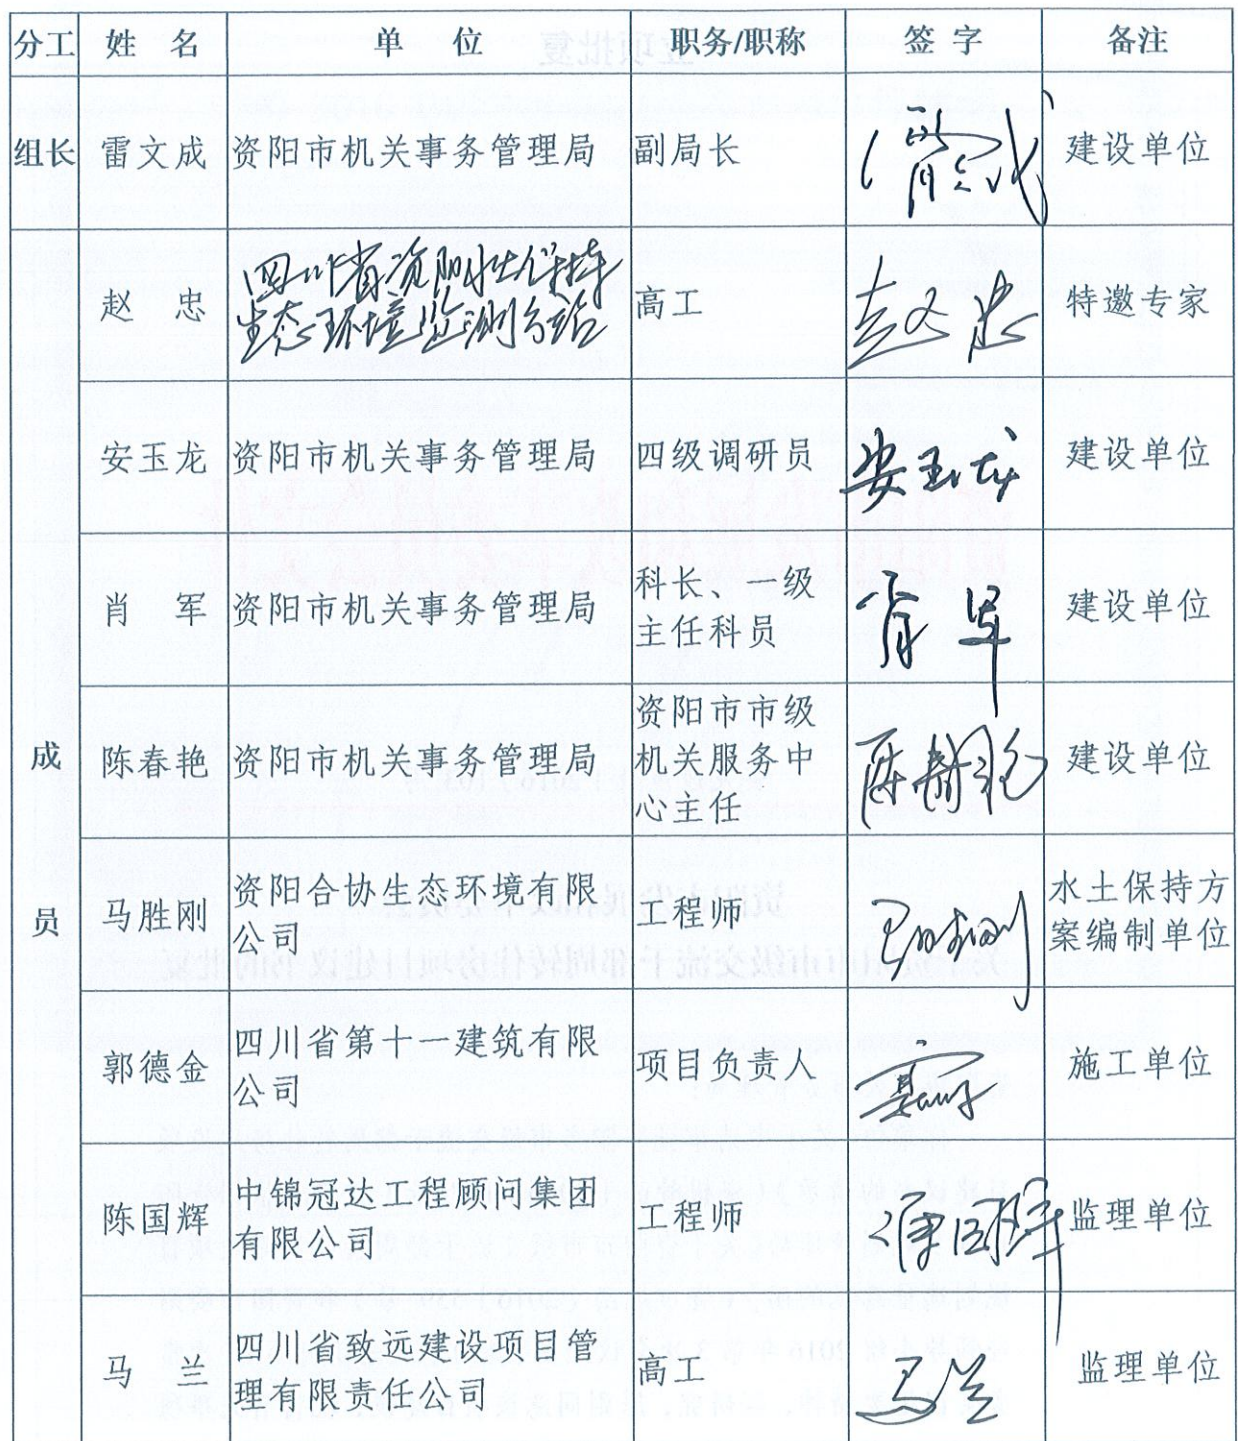 分工 姓 名 单 位 职务/职称 签字 备注
组长 雷文成 资阳市机关事务管理局 副局长 建设单位
赵 忠 四川省资阳水土保持
生态环境监测分站 高工 赵忠 特邀专家
安玉龙 资阳市机关事务管理局 四级调研员 安玉龙 建设单位
成
员
肖 军 资阳市机关事务管理局 科长、一级
主任科员 肖军 建设单位
陈春艳 资阳市机关事务管理局 资阳市市级
机关服务中
心主任 陈春艳 建设单位
马胜刚 资阳合协生态环境有限
公司 工程师 马胜刚 水土保持方
案编制单位
郭德金 四川省第十一建筑有限
公司 项目负责人 施工单位
陈国辉 中锦冠达工程顾问集团
有限公司 工程师 陈国辉 监理单位
马 兰 四川省致远建设项目管
理有限责任公司 高工 马兰 监理单位